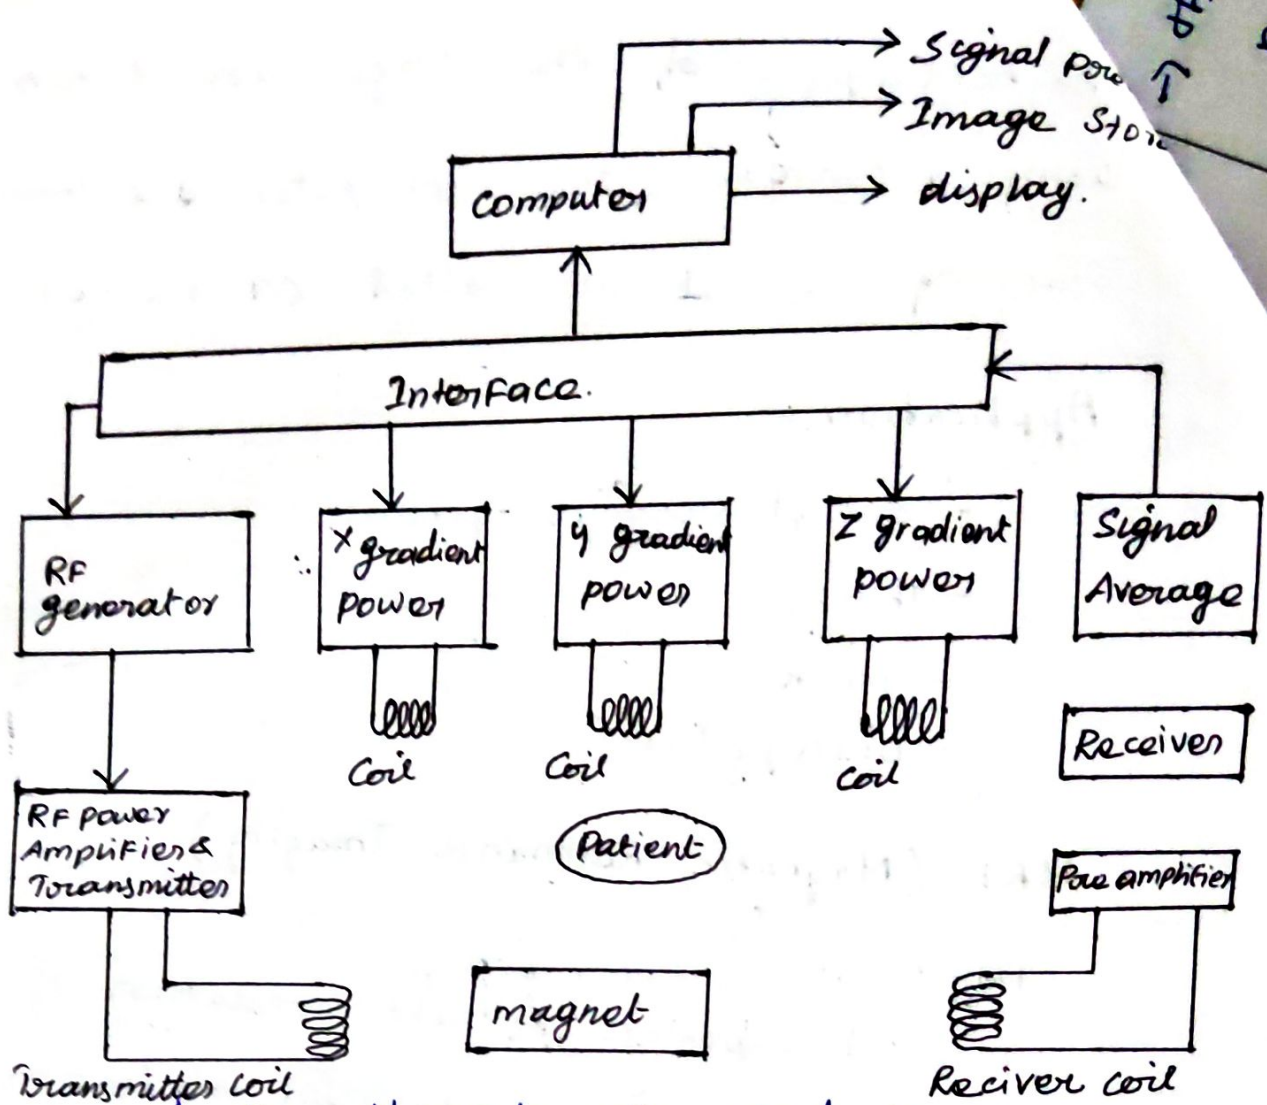 Signal
Image
display.
Computer
Interface.
RF
generator
X gradient
Power
Y gradient
power
Z gradient
power
Signal
Average
Coil
Coil
Coil
Receiver
RF Power
Amplifier &
Transmitter
Patient
Pre amplifier
magnet
Transmitter coil
Reciver coil